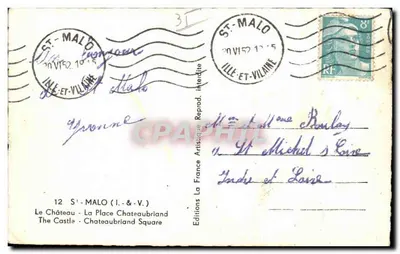 3I
ST-MALO
20 VI 52
ILLE-ET-VILAINE
ST-MALO
20 VI 52
ILLE-ET-VILAINE
8F
RF
St Malo
Yvonne
CPAPHIL
Mr et Mme Boulay
à St Michel s/ Loire
Indre et Loire
Editions La France Artistique Reprod. Interdite
12 St-MALO (I.-&-V.)
Le Château - La Place Chateaubriand
The Castle - Chateaubriand Square